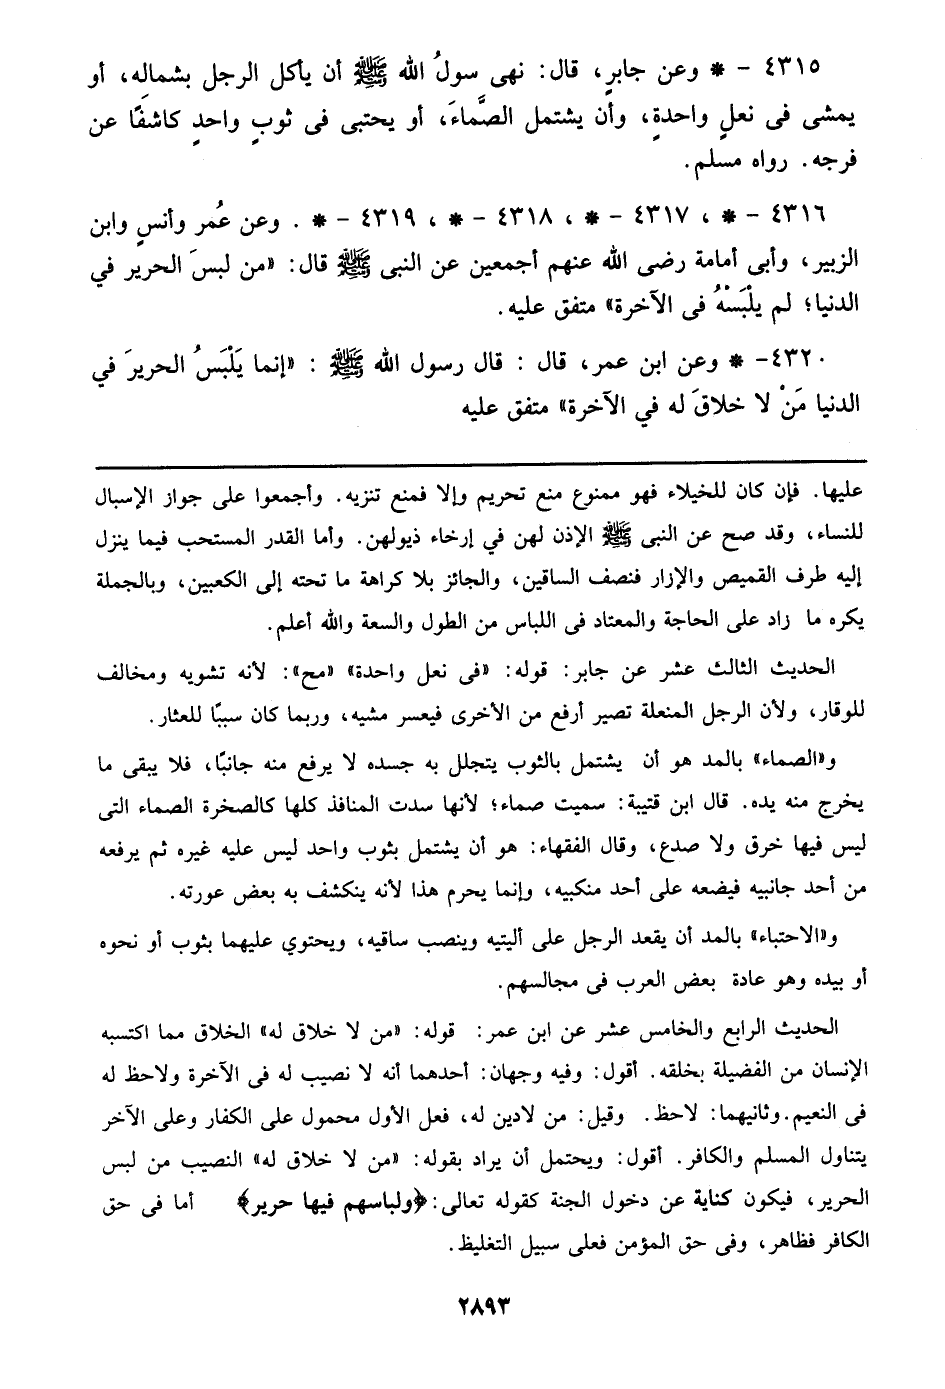 ٤٣١٥ - * وعن جابرٍ، قال: نهى سولُ الله ﷺ أن يأكل الرجل بشمالِه، أو
يمشى فى نعلٍ واحدةٍ، وأن يشتمل الصَّماءَ، أو يحتبى فى ثوبٍ واحدٍ كاشفًا عن
فرجه. رواه مسلم.
٤٣١٦ - * ، ٤٣١٧ - * ، ٤٣١٨ - * ، ٤٣١٩ - * . وعن عُمر وأنسٍ وابن
الزبير، وأبى أمامة رضى الله عنهم أجمعين عن النبى ﷺ قال: «من لبسَ الحرير في
الدنيا؛ لم يلْبَسْهُ فى الآخرة» متفق عليه.
٤٣٢٠- * وعن ابن عمر، قال : قال رسول الله ﷺ : «إنما يَلْبَسُ الحريرَ في
الدنيا مَنْ لا خلاقَ له في الآخرة» متفق عليه
عليها. فإن كان للخيلاء فهو ممنوع منع تحريم وإلا فمنع تنزيه. وأجمعوا على جواز الإسبال
للنساء، وقد صح عن النبى ﷺ الإذن لهن في إرخاء ذيولهن. وأما القدر المستحب فيما ينزل
إليه طرف القميص والإزار فنصف الساقين، والجائز بلا كراهة ما تحته إلى الكعبين، وبالجملة
يكره ما زاد على الحاجة والمعتاد فى اللباس من الطول والسعة والله أعلم.
الحديث الثالث عشر عن جابر: قوله: «فى نعل واحدة» «مح»: لأنه تشويه ومخالف
للوقار، ولأن الرجل المنعلة تصير أرفع من الأخرى فيعسر مشيه، وربما كان سببًا للعثار.
و«الصماء» بالمد هو أن يشتمل بالثوب يتجلل به جسده لا يرفع منه جانبًا، فلا يبقى ما
يخرج منه يده. قال ابن قتيبة: سميت صماء؛ لأنها سدت المنافذ كلها كالصخرة الصماء التى
ليس فيها خرق ولا صدع، وقال الفقهاء: هو أن يشتمل بثوب واحد ليس عليه غيره ثم يرفعه
من أحد جانبيه فيضعه على أحد منكبيه، وإنما يحرم هذا لأنه ينكشف به بعض عورته.
و«الاحتباء» بالمد أن يقعد الرجل على أليتيه وينصب ساقيه، ويحتوي عليهما بثوب أو نحوه
أو بيده وهو عادة بعض العرب فى مجالسهم.
الحديث الرابع والخامس عشر عن ابن عمر: قوله: «من لا خلاق له» الخلاق مما اكتسبه
الإنسان من الفضيلة بخلقه. أقول: وفيه وجهان: أحدهما أنه لا نصيب له فى الآخرة ولاحظ له
فى النعيم.وثانيهما: لاحظ. وقيل: من لادين له، فعل الأول محمول على الكفار وعلى الآخر
يتناول المسلم والكافر. أقول: ويحتمل أن يراد بقوله: «من لا خلاق له» النصيب من لبس
الحرير، فيكون كناية عن دخول الجنة كقوله تعالى:﴿ولباسهم فيها حرير﴾ أما فى حق
الكافر فظاهر، وفى حق المؤمن فعلى سبيل التغليظ.
٢٨٩٣